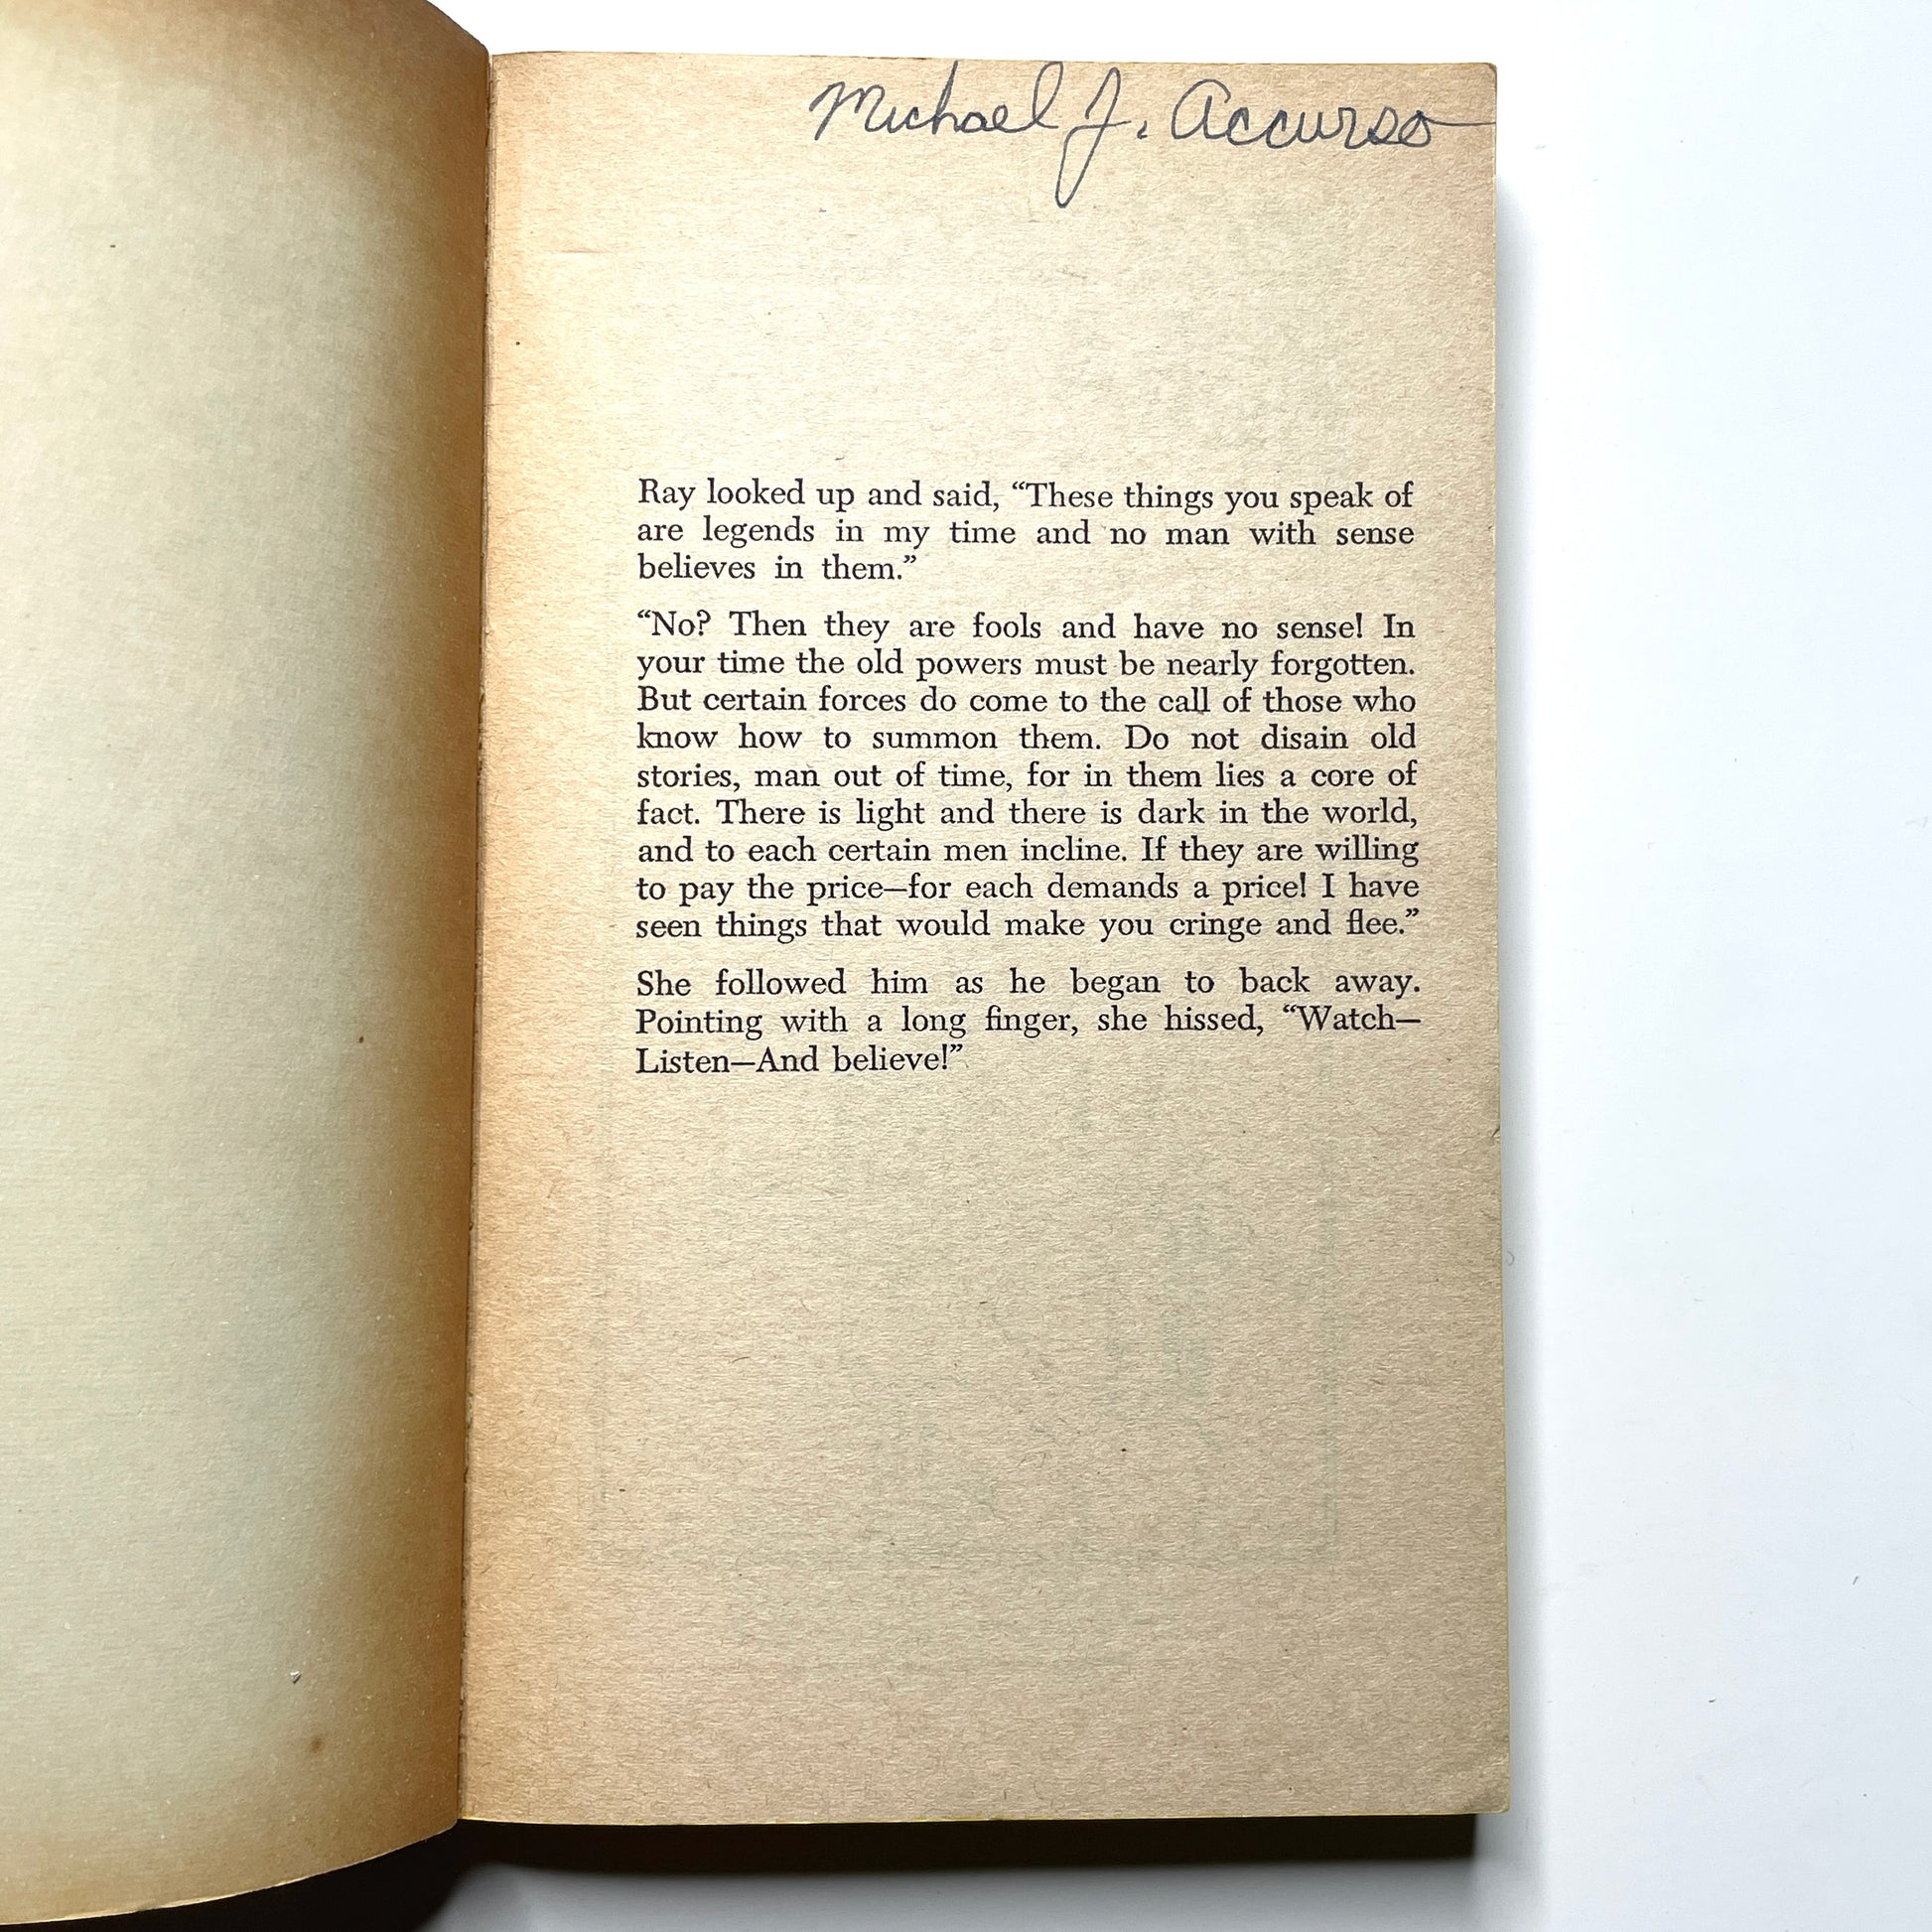 Michael J. Accurso
Ray looked up and said, “These things you speak of
are legends in my time and no man with sense
believes in them.”
“No? Then they are fools and have no sense! In
your time the old powers must be nearly forgotten.
But certain forces do come to the call of those who
know how to summon them. Do not disain old
stories, man out of time, for in them lies a core of
fact. There is light and there is dark in the world,
and to each certain men incline. If they are willing
to pay the price—for each demands a price! I have
seen things that would make you cringe and flee.”
She followed him as he began to back away.
Pointing with a long finger, she hissed, “Watch—
Listen—And believe!”